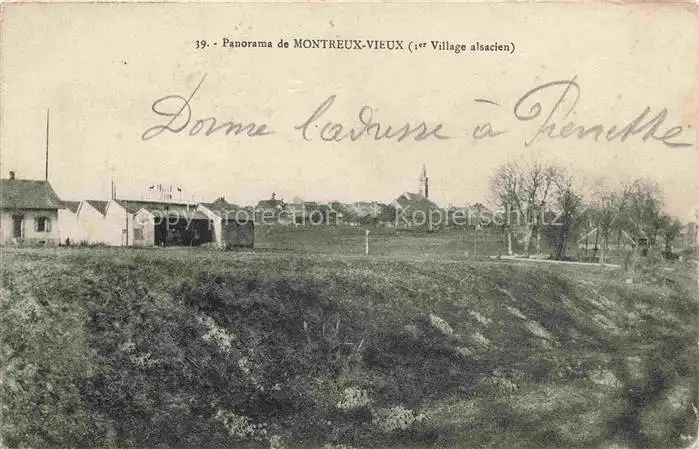 39. - Panorama de MONTREUX-VIEUX (1er Village alsacien)
Donne l'adresse à Pierrette
Copyright Protected Kopierschutz